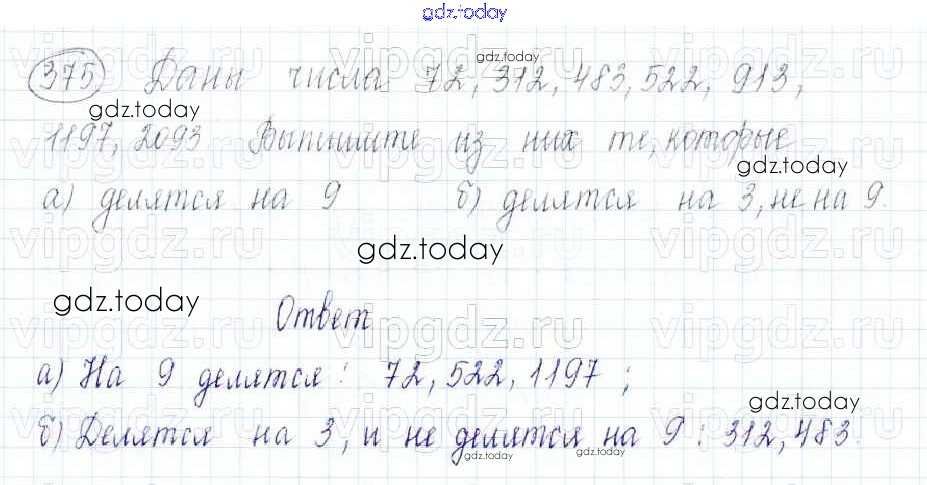 gdz.today
375 Даны числа 72, 312, 483, 522, 913,
gdz.today
gdz.today
1197, 2093 Выпишите из них те, которые
gdz.today
а) делятся на 9 б) делятся на 3, не на 9.
gdz.today
gdz.today
Ответ
vipgdz.ru vipgdz.ru vipgdz.ru
а) На 9 делятся: 72, 522, 1197;
gdz.today
б) Делятся на 3, и не делятся на 9: 312, 483.
gdz.today gdz.today